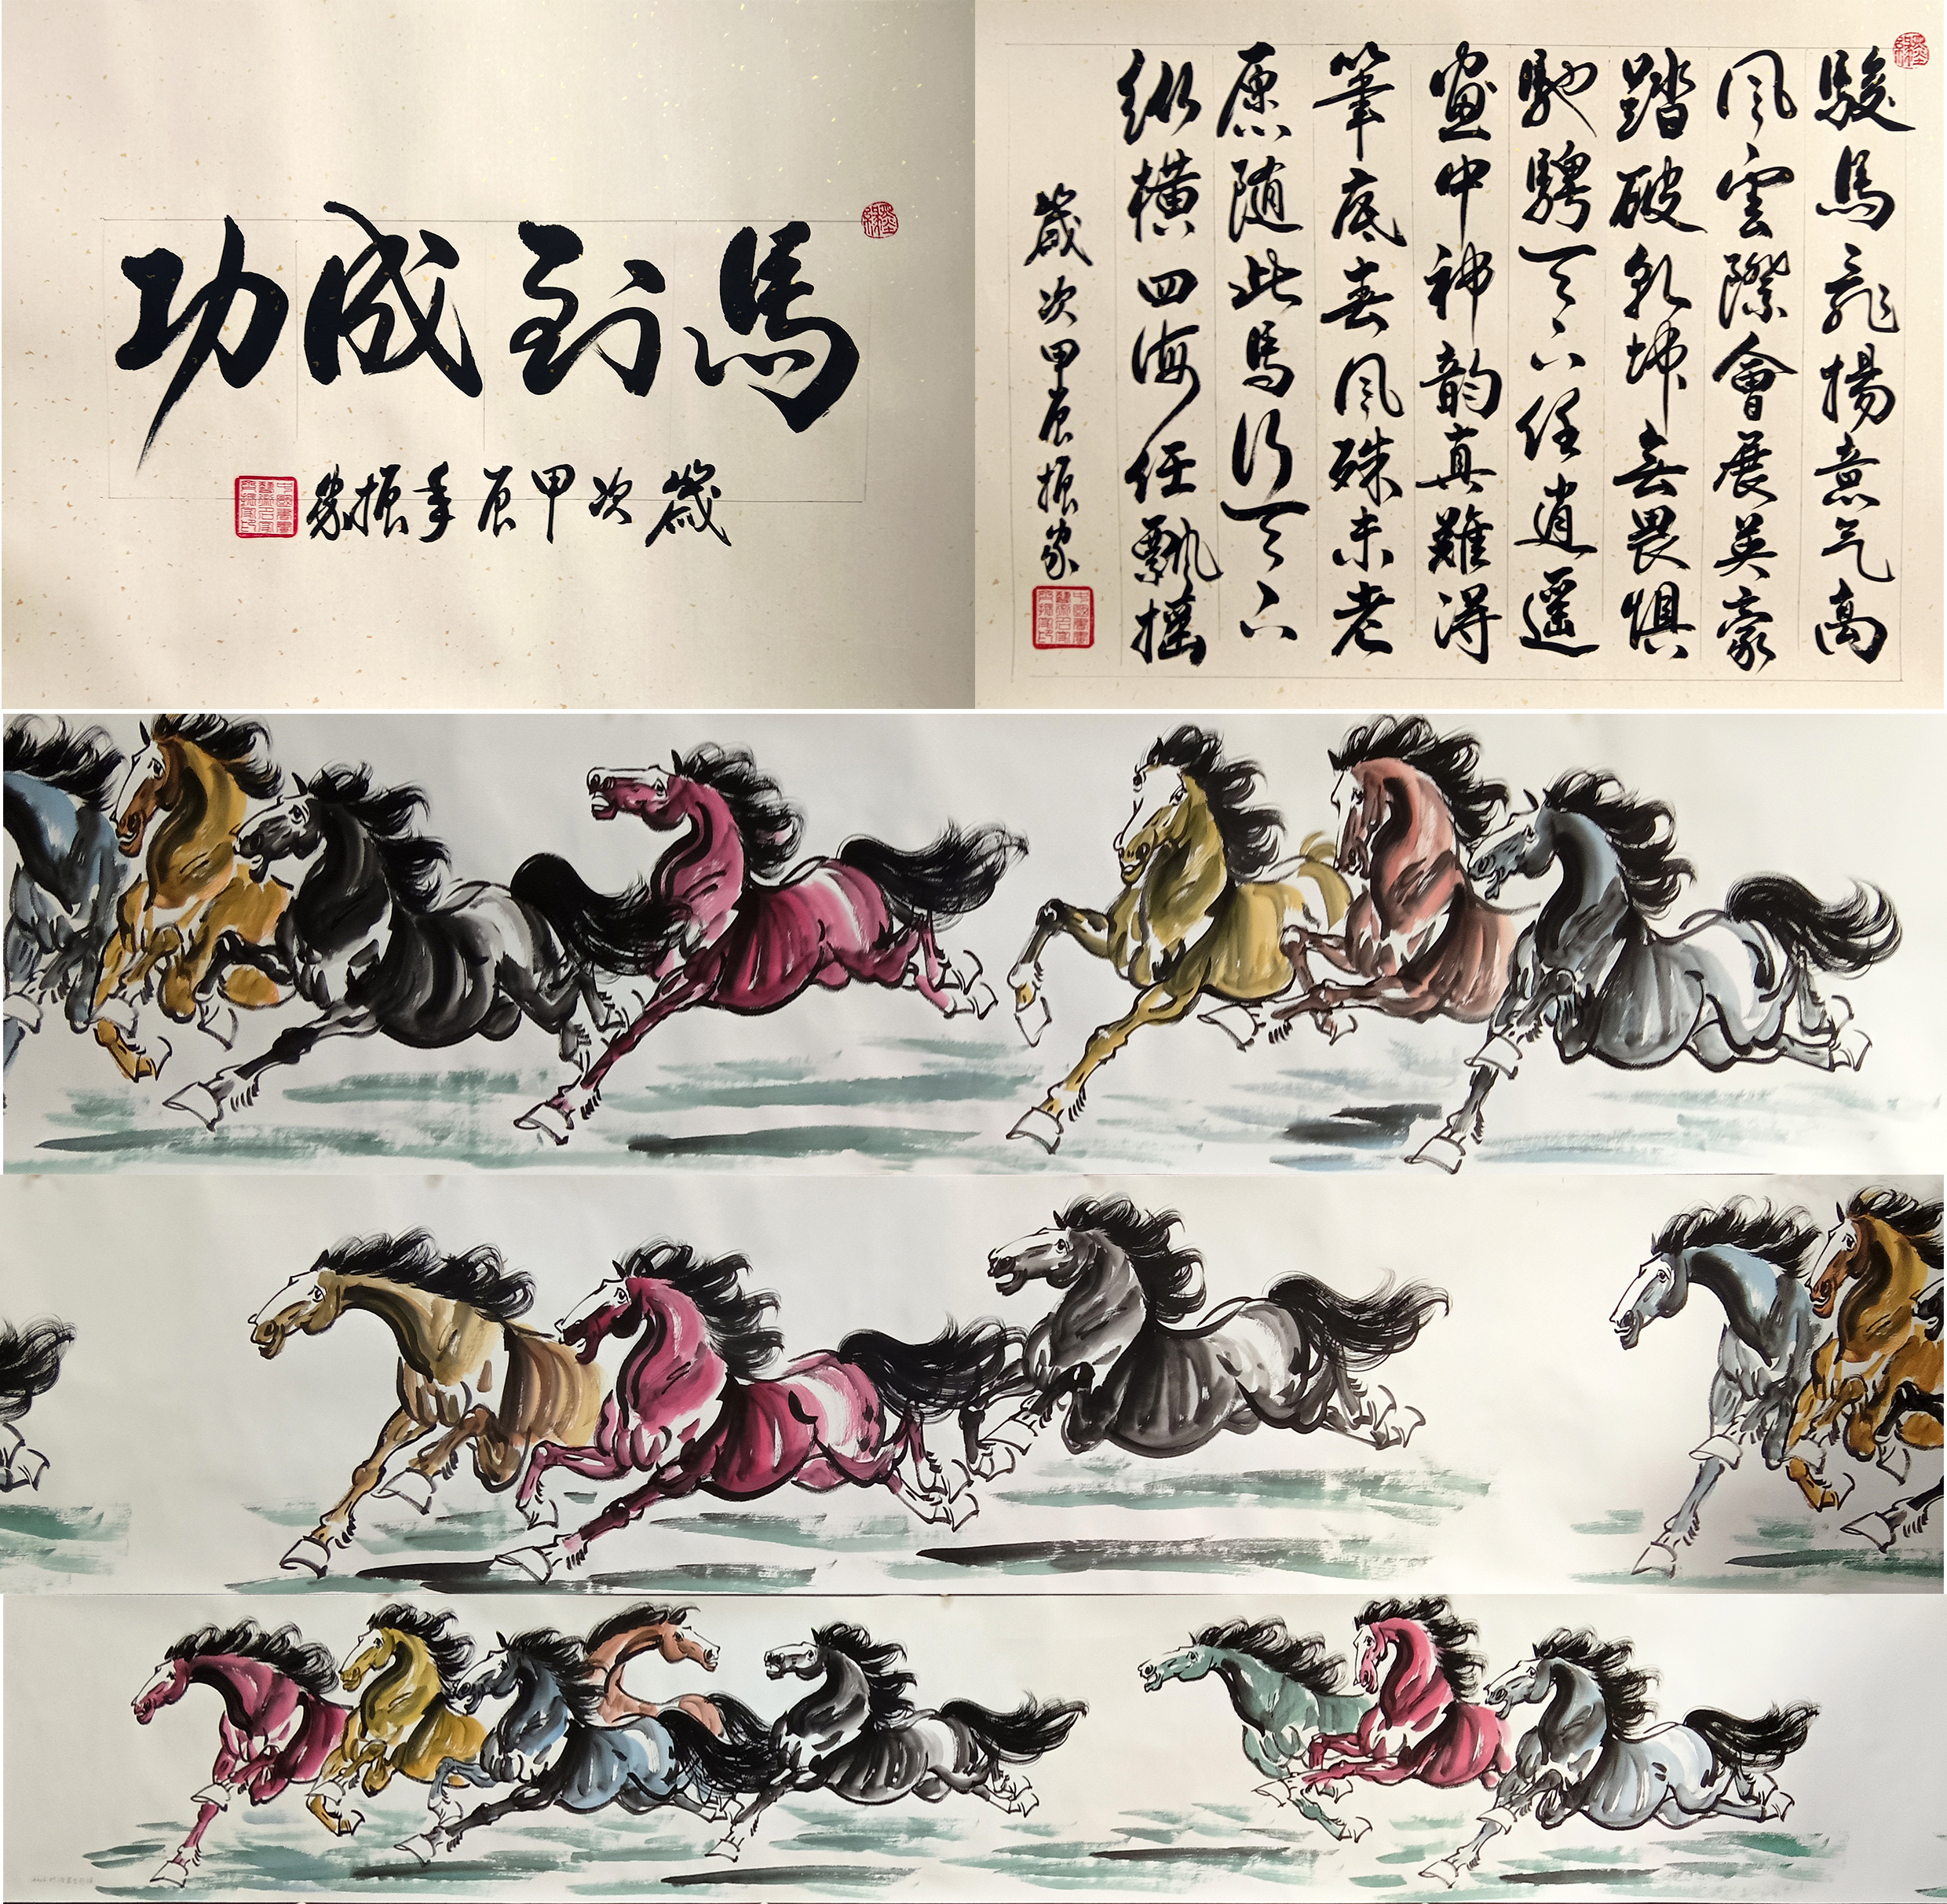 馬到成功
歲次甲辰年振家
駿馬飛揚意气高
风雲際會展英豪
踏破乾坤無畏懼
馳騁天下任逍遥
畫中神韵真難得
筆底春风殊未老
愿随此馬行天下
纵横四海任飄摇
歲次甲辰振家